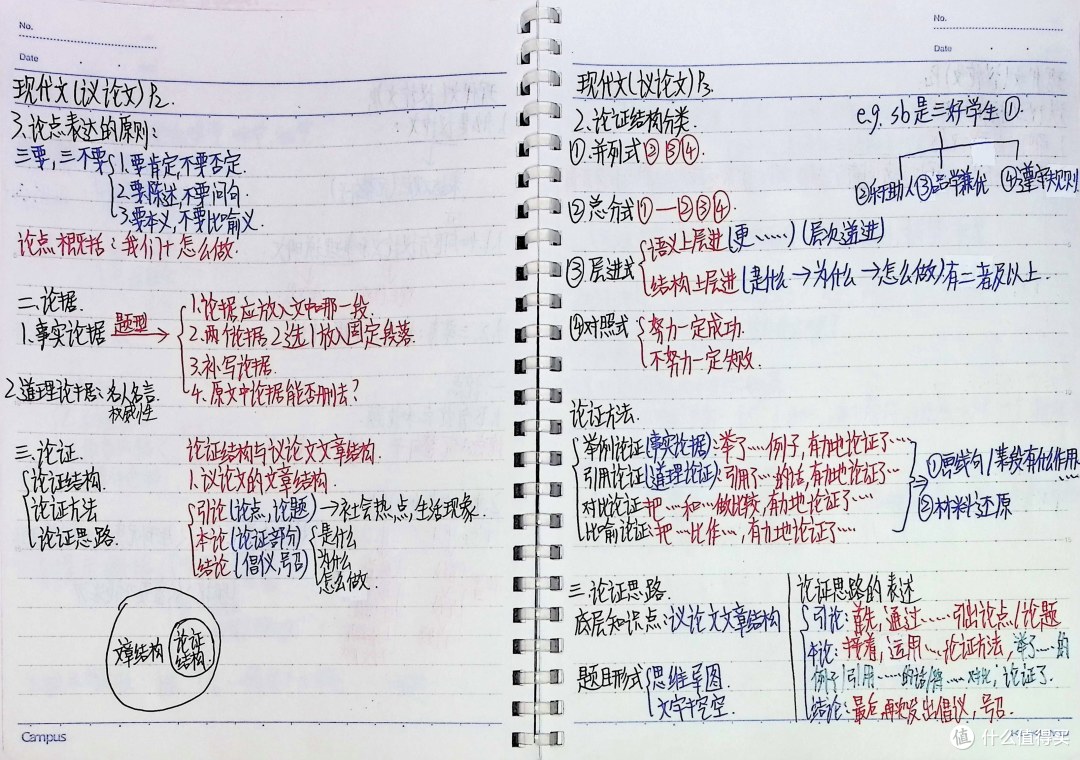 No.
Date
现代文(议论文) P2.
3.论点表达的原则:
三要,三不要 1.要肯定,不要否定.
2.要陈述,不要问句
3.要本义,不要比喻义
论点概括:我们+怎么做.
二.论据
1.事实论据 题型
1.论据应放入文中哪一段.
2.两个论据2选1放入固定段落.
3.补写论据.
4.原文中论据能否删去?
2.道理论据:名人名言.
权威性
三.论证
论证结构.
论证方法
论证思路.
论证结构与议论文文章结构.
1.议论文的文章结构.
引论(论点,论题)→社会热点,生活现象.
本论(论证部分)
结论(倡议,号召)
是什么
为什么
怎么做.
文章结构
论证结构.
Campus
No.
Date
现代文(议论文)P3.
2.论证结构分类.
e.g. sb是三好学生①
①.并列式②③④.
②乐于助人③品学兼优 ④遵守规则
②总分式①—②③④
③层进式
语义上层进(更……)(层次递进)
结构上层进(是什么→为什么→怎么做)有二者及以上.
④对照式
努力一定成功.
不努力一定失败.
论证方法.
举例论证(事实论据):举了…例子,有力地论证了…
引用论证(道理论证):引用…的话,有力地论证了…
对比论证:把…和…做比较,有力地论证了…
比喻论证:把…比作…,有力地论证了…
①画线句/某段有什么作用
②材料还原
三.论证思路.
底层知识点:议论文文章结构
题目形式
思维导图.
文字填空.
论证思路的表述
引论:首先,通过……引出论点/论题
本论:接着,运用…论证方法,举了…的
例子/引用……的话/将……对比,论证了.
结论:最后,再次发出倡议,号召.
值 什么值得买